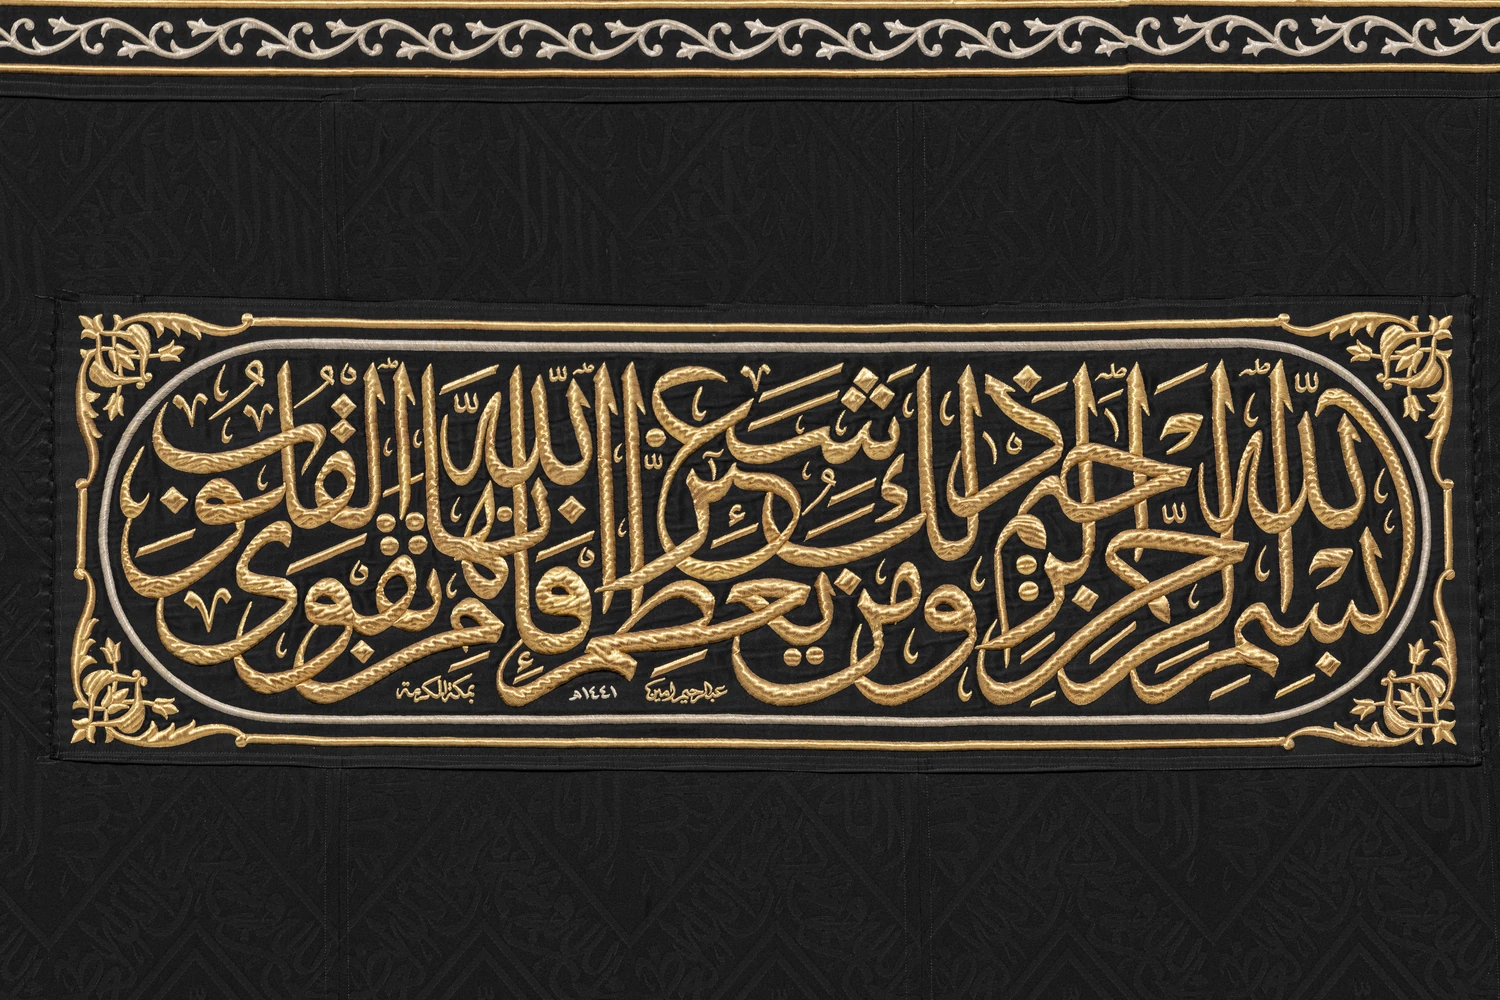 بسم الله الرحمن الرحيم ذلك ومن يعظم شعائر الله فإنها من تقوى القلوب
عبدالرحيم أمين ١٤٤١هـ بمكة المكرمة